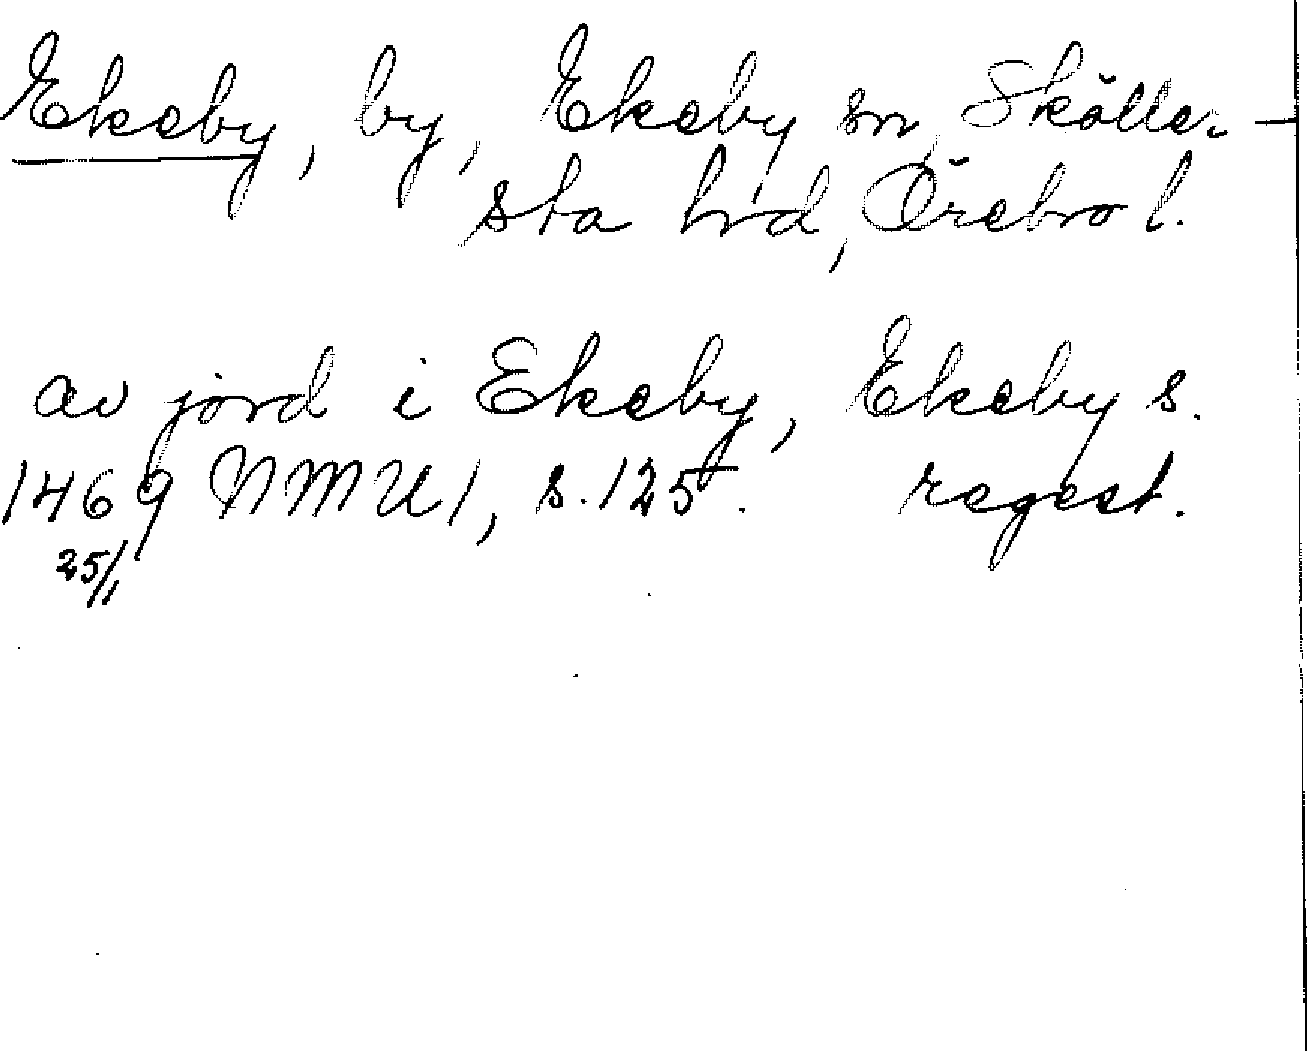 Ekeby, by, Ekeby sn, Sköller-
sta hrd, Örebro l.
av jord i Ekeby, Ekeby s.
1469 NMU 1, s. 125. regest.
25/1